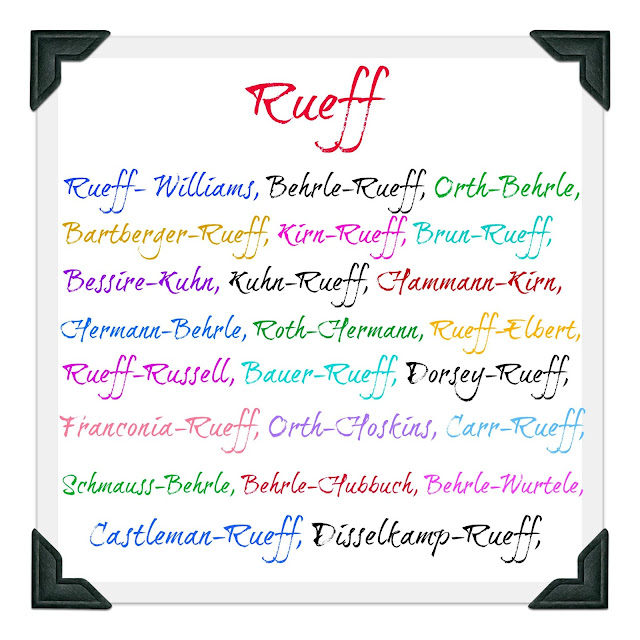 Rueff
Rueff- Williams, Behrle-Rueff, Orth-Behrle,
Bartberger-Rueff, Kirn-Rueff, Brun-Rueff,
Bessire-Kuhn, Kuhn-Rueff, Hammann-Kirn,
Hermann-Behrle, Roth-Hermann, Rueff-Elbert,
Rueff-Russell, Bauer-Rueff, Dorsey-Rueff,
Franconia-Rueff, Orth-Hoskins, Carr-Rueff,
Schmauss-Behrle, Behrle-Hubbuch, Behrle-Wurtele,
Castleman-Rueff, Disselkamp-Rueff,